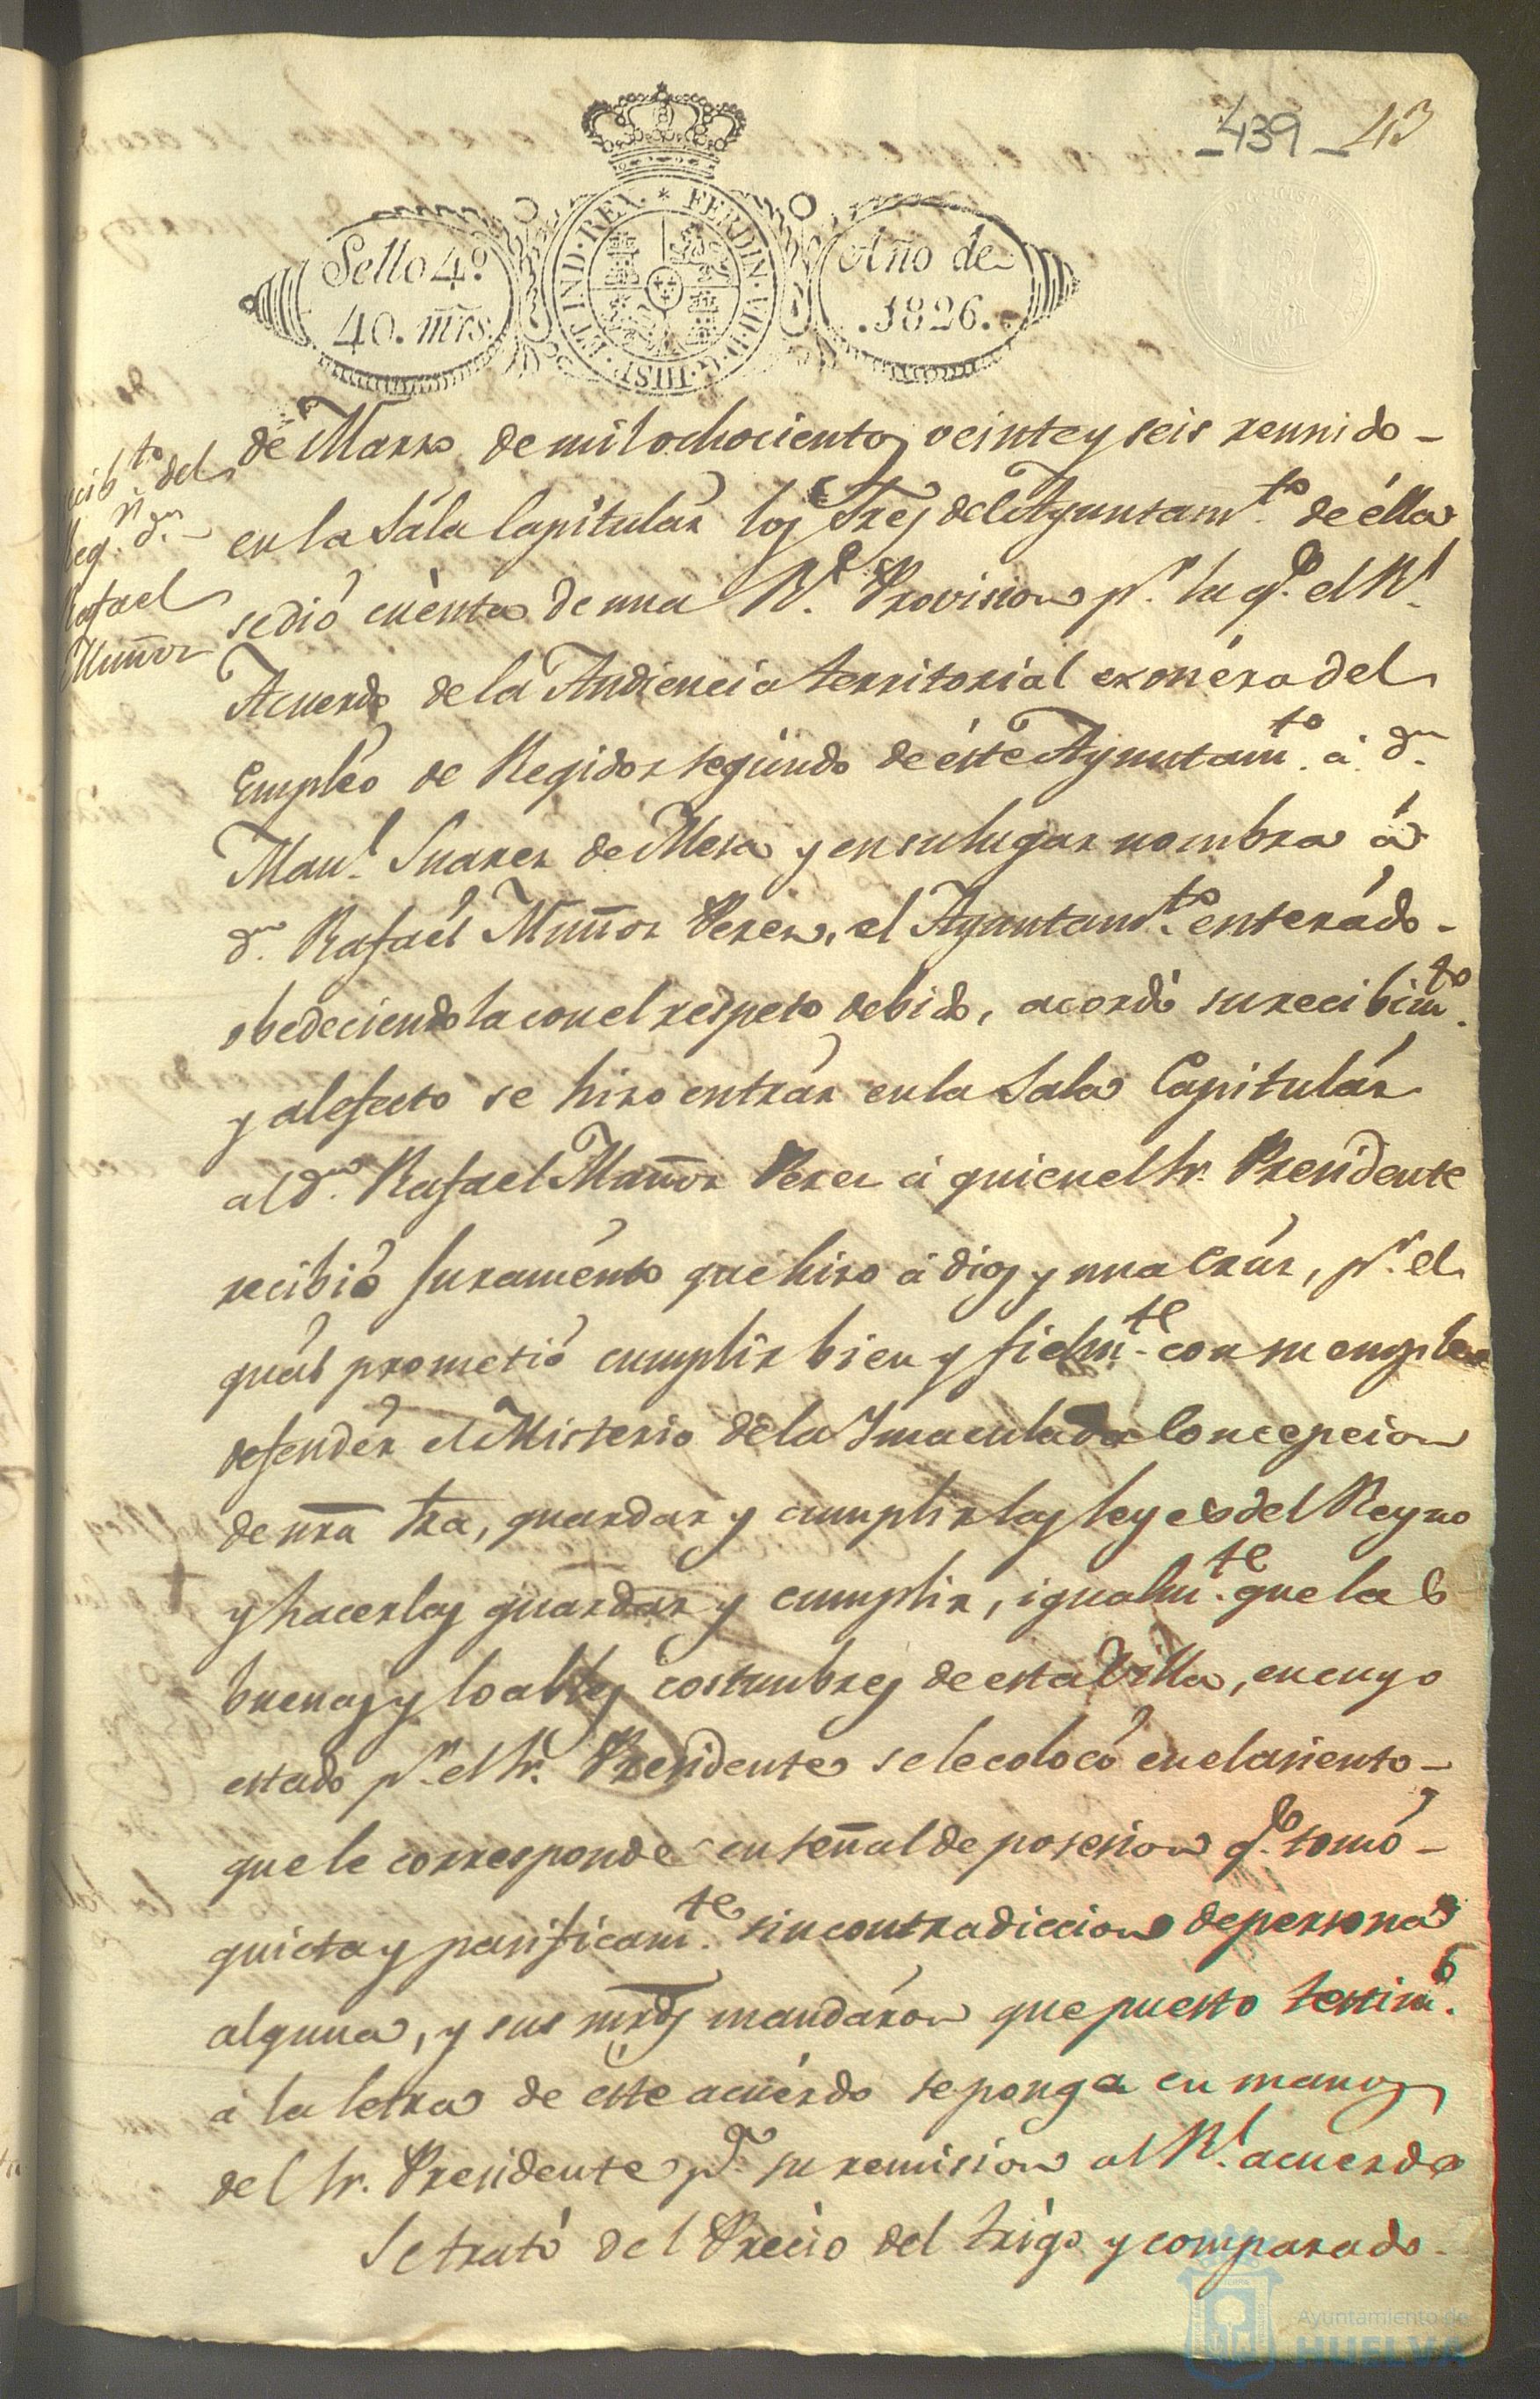 439 43
FERDIN. VII. D. G. HISP. ET IND. REX.
Sello 4º.
40. mrs.
Año de
.1826.
de Marzo de mil ochocientos veinte y seis reunido
en la Sála Capitulár los Sres del Ayuntamto. de élla
se dió cuènta de una Rl. Provision pr. la qe. el Rl.
Acuerdo de la Audiencia territorial exonéra del
Empléo de Regidor segúndo de éste Ayuntamto. á dn.
Manl. Suarez de Mesa y en su lugar nombra á
dn. Rafaél Muñoz Perez, el Ayuntamto. enterádo
obedeciendola con el respeto debido, acordó su recibimto.
y al efecto se hizo entrár en la Sala Capitulár
al dn. Rafael Muñoz Perez á quien el Sr. Presidente
recibió Juraménto que hizo á dios y una Crúz, pr. el
quál prometió cumplír bien y fielmte. con su empleo
defendér el Misterio de la Inmaculada Concepcion
de nra Sra, guardar y cumplir las leyes del Reyno
y hacerlas guardar y cumplir, igualmte. que las
buenas y loables costumbres de esta Villa, en cuyo
estado pr. el Sr. Presidente se le colocó en el asiento
que le corresponde en señal de posesion qe. tomó
quieta y pasificamte. sin contradiccion de persona
alguna, y sus mrds mandáron que puesto testimo.
á la letra de éste acuérdo se ponga en manos
del Sr. Presidente pa. su remision al Rl. acuerdo
Se trató del Précio del trigo y comparado
cibto. del
Reg. dn.
Rafael
Muñoz
Ayuntamiento de
HUELVA